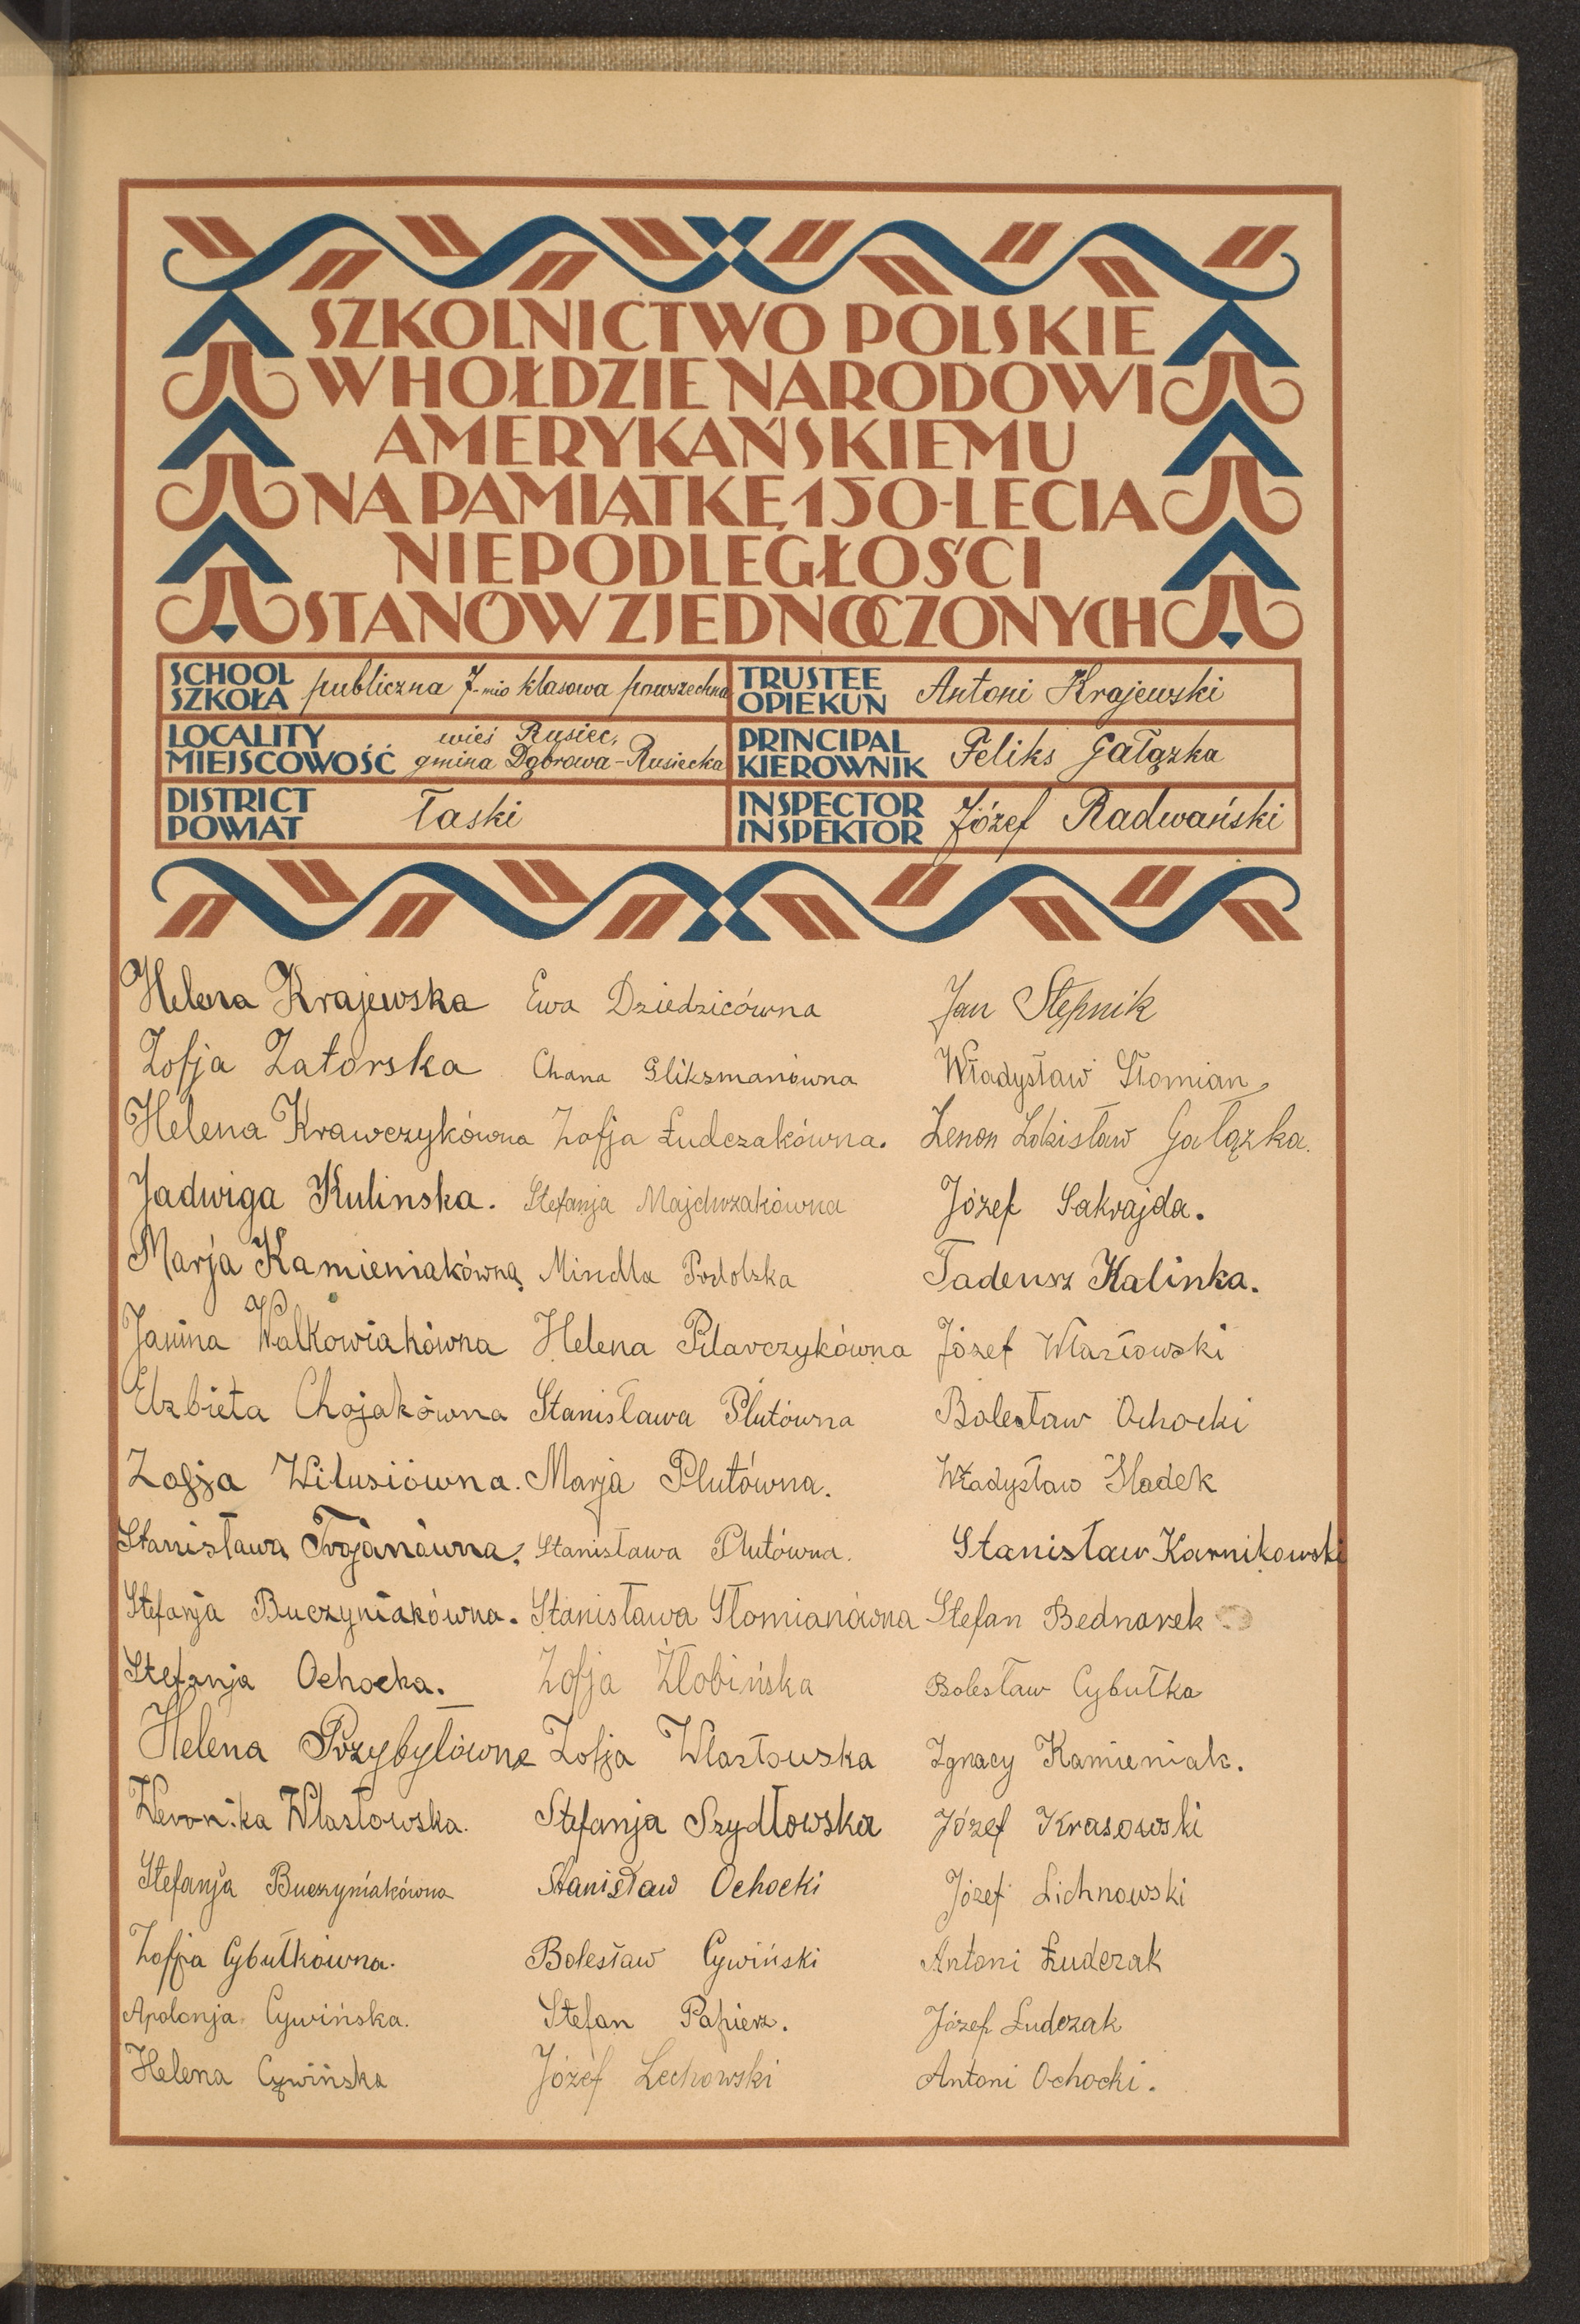 SZKOLNICTWO POLSKIE
W HOŁDZIE NARODOWI
AMERYKAŃSKIEMU
NA PAMIĄTKĘ 150-LECIA
NIEPODLEGŁOŚCI
STANÓW ZJEDNOCZONYCH
SCHOOL
SZKOŁA publiczna 7-mio klasowa powszechna
TRUSTEE
OPIEKUN Antoni Krajewski
LOCALITY
MIEJSCOWOŚĆ wieś Rusiec,
gmina Dąbrowa-Rusiecka
PRINCIPAL
KIEROWNIK Feliks Gałązka
DISTRICT
POWIAT Łaski
INSPECTOR
INSPEKTOR Józef Radwański
Helena Krajewska
Zofja Zatorska
Helena Krawczykówna
Jadwiga Kulinska.
Marja Kamieniakówna
Janina Walkowiakówna
Elzbieta Chojakówna
Zofja Wilusiówna.
Stanisława Trojanówna.
Stefanja Buczyniakówna.
Stefanja Ochocka.
Helena Przybyłówna
Weronika Własłowska.
Stefanja Buczyniakówna
Zofja Cybułkówna.
Apolonja Cywińska.
Helena Cywińska
Ewa Dziedzicówna
Chana Glikzmanówna
Zofja Łudczakówna.
Stefanja Majchrzakówna
Mindla Podolska
Helena Pilarczykówna
Stanisława Plutówna
Marja Plutówna.
Stanisława Plutówna.
Stanisława Słomianówna
Zofja Żłobińska
Zofja Wlazłowska
Stefanja Szydłowska
Stanisław Ochocki
Bolesław Cywiński
Stefan Papierz.
Józef Lechowski
Jan Stępnik
Władysław Słomian
Zenon Gałązka.
Józef Sakrajda.
Tadeusz Kalinka.
Józef Wlazłowski
Bolesław Ochocki
Władysław Sladek
Stanisław Karnikowski
Stefan Bednarek
Bolesław Cybułka
Ignacy Kamieniak.
Józef Krasowski
Józef Lichnowski
Antoni Łudczak
Józef Ludczak
Antoni Ochocki.